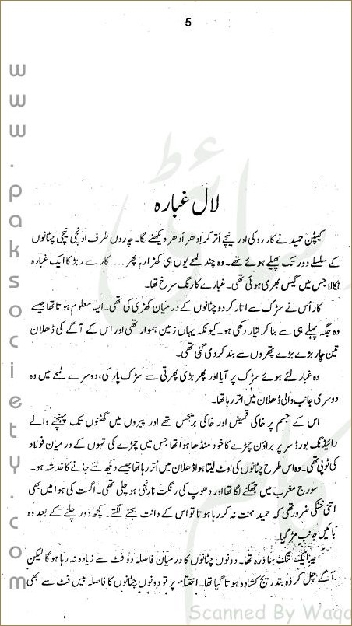 5
لال غبارہ
کیپٹن حمید نے کار روکی اور نیچے اتر کر ادھر ادھر دیکھنے لگا۔ چاروں طرف اونچی نیچی چٹانوں
کے سلسلے دور تک پھیلے ہوئے تھے۔ وہ چند لمحے یوں ہی کھڑا رہا پھر... کار سے ربڑ کا ایک غبارہ
نکالا جس میں گیس بھری ہوئی تھی۔ غبارے کا رنگ سرخ تھا۔
کار اس نے سڑک سے اتار کر دو چٹانوں کے درمیان کھڑی کی تھی۔ ایسا معلوم ہوتا تھا جیسے
وہ جگہ پہلے ہی سے بنا کر تیار رکھی ہو۔ کیونکہ یہاں زمین ہموار تھی اور اس کے آگے کی ڈھلان
تین چار بڑے بڑے پتھروں سے بند کر دی گئی تھی۔
وہ غبارہ لئے ہوئے سڑک پر آیا اور پھر بڑی پھرتی سے سڑک پار کی، دوسرے لمحے میں وہ
دوسری جانب والی ڈھلان میں اتر رہا تھا۔
اس کے جسم پر خاکی قمیض اور خاکی برجس تھے اور پیروں میں گھٹنوں تک پہنچنے والے
رائیڈنگ بوٹ سر پر براؤن چمڑے کا خود منڈھا ہوا تھا جس میں چمڑے کی تہوں کے درمیان فولاد
کی ٹوپی تھی۔ وہ اس طرح چٹانوں کی اوٹ لیتا ہوا ڈھلان میں اتر رہا تھا جیسے دیکھ لئے جانے کا خدشہ ہو۔
سورج مغرب میں جھکنے لگا تھا اور دھوپ کی رنگت نارنجی ہو چلی تھی۔ اگست کی ہوا میں بھی
اتنی خنکی ضرور تھی کہ حمید محنت نہ کر رہا ہوتا تو اس کے دانت بجنے لگتے۔ کچھ دور چلنے کے بعد وہ
بائیں جانب مڑ گیا۔
یہ ایک تنگ سا درہ تھا۔ دونوں چٹانوں کا درمیان فاصلہ دو فٹ سے زیادہ نہ رہا ہو گا لیکن
آگے چل کر وہ بتدریج کشادہ ہوتا گیا تھا۔ اختتام پر تو دونوں چٹانوں کا فاصلہ تیس فٹ سے بھی
www.paksociety.com
Scanned By Waqa